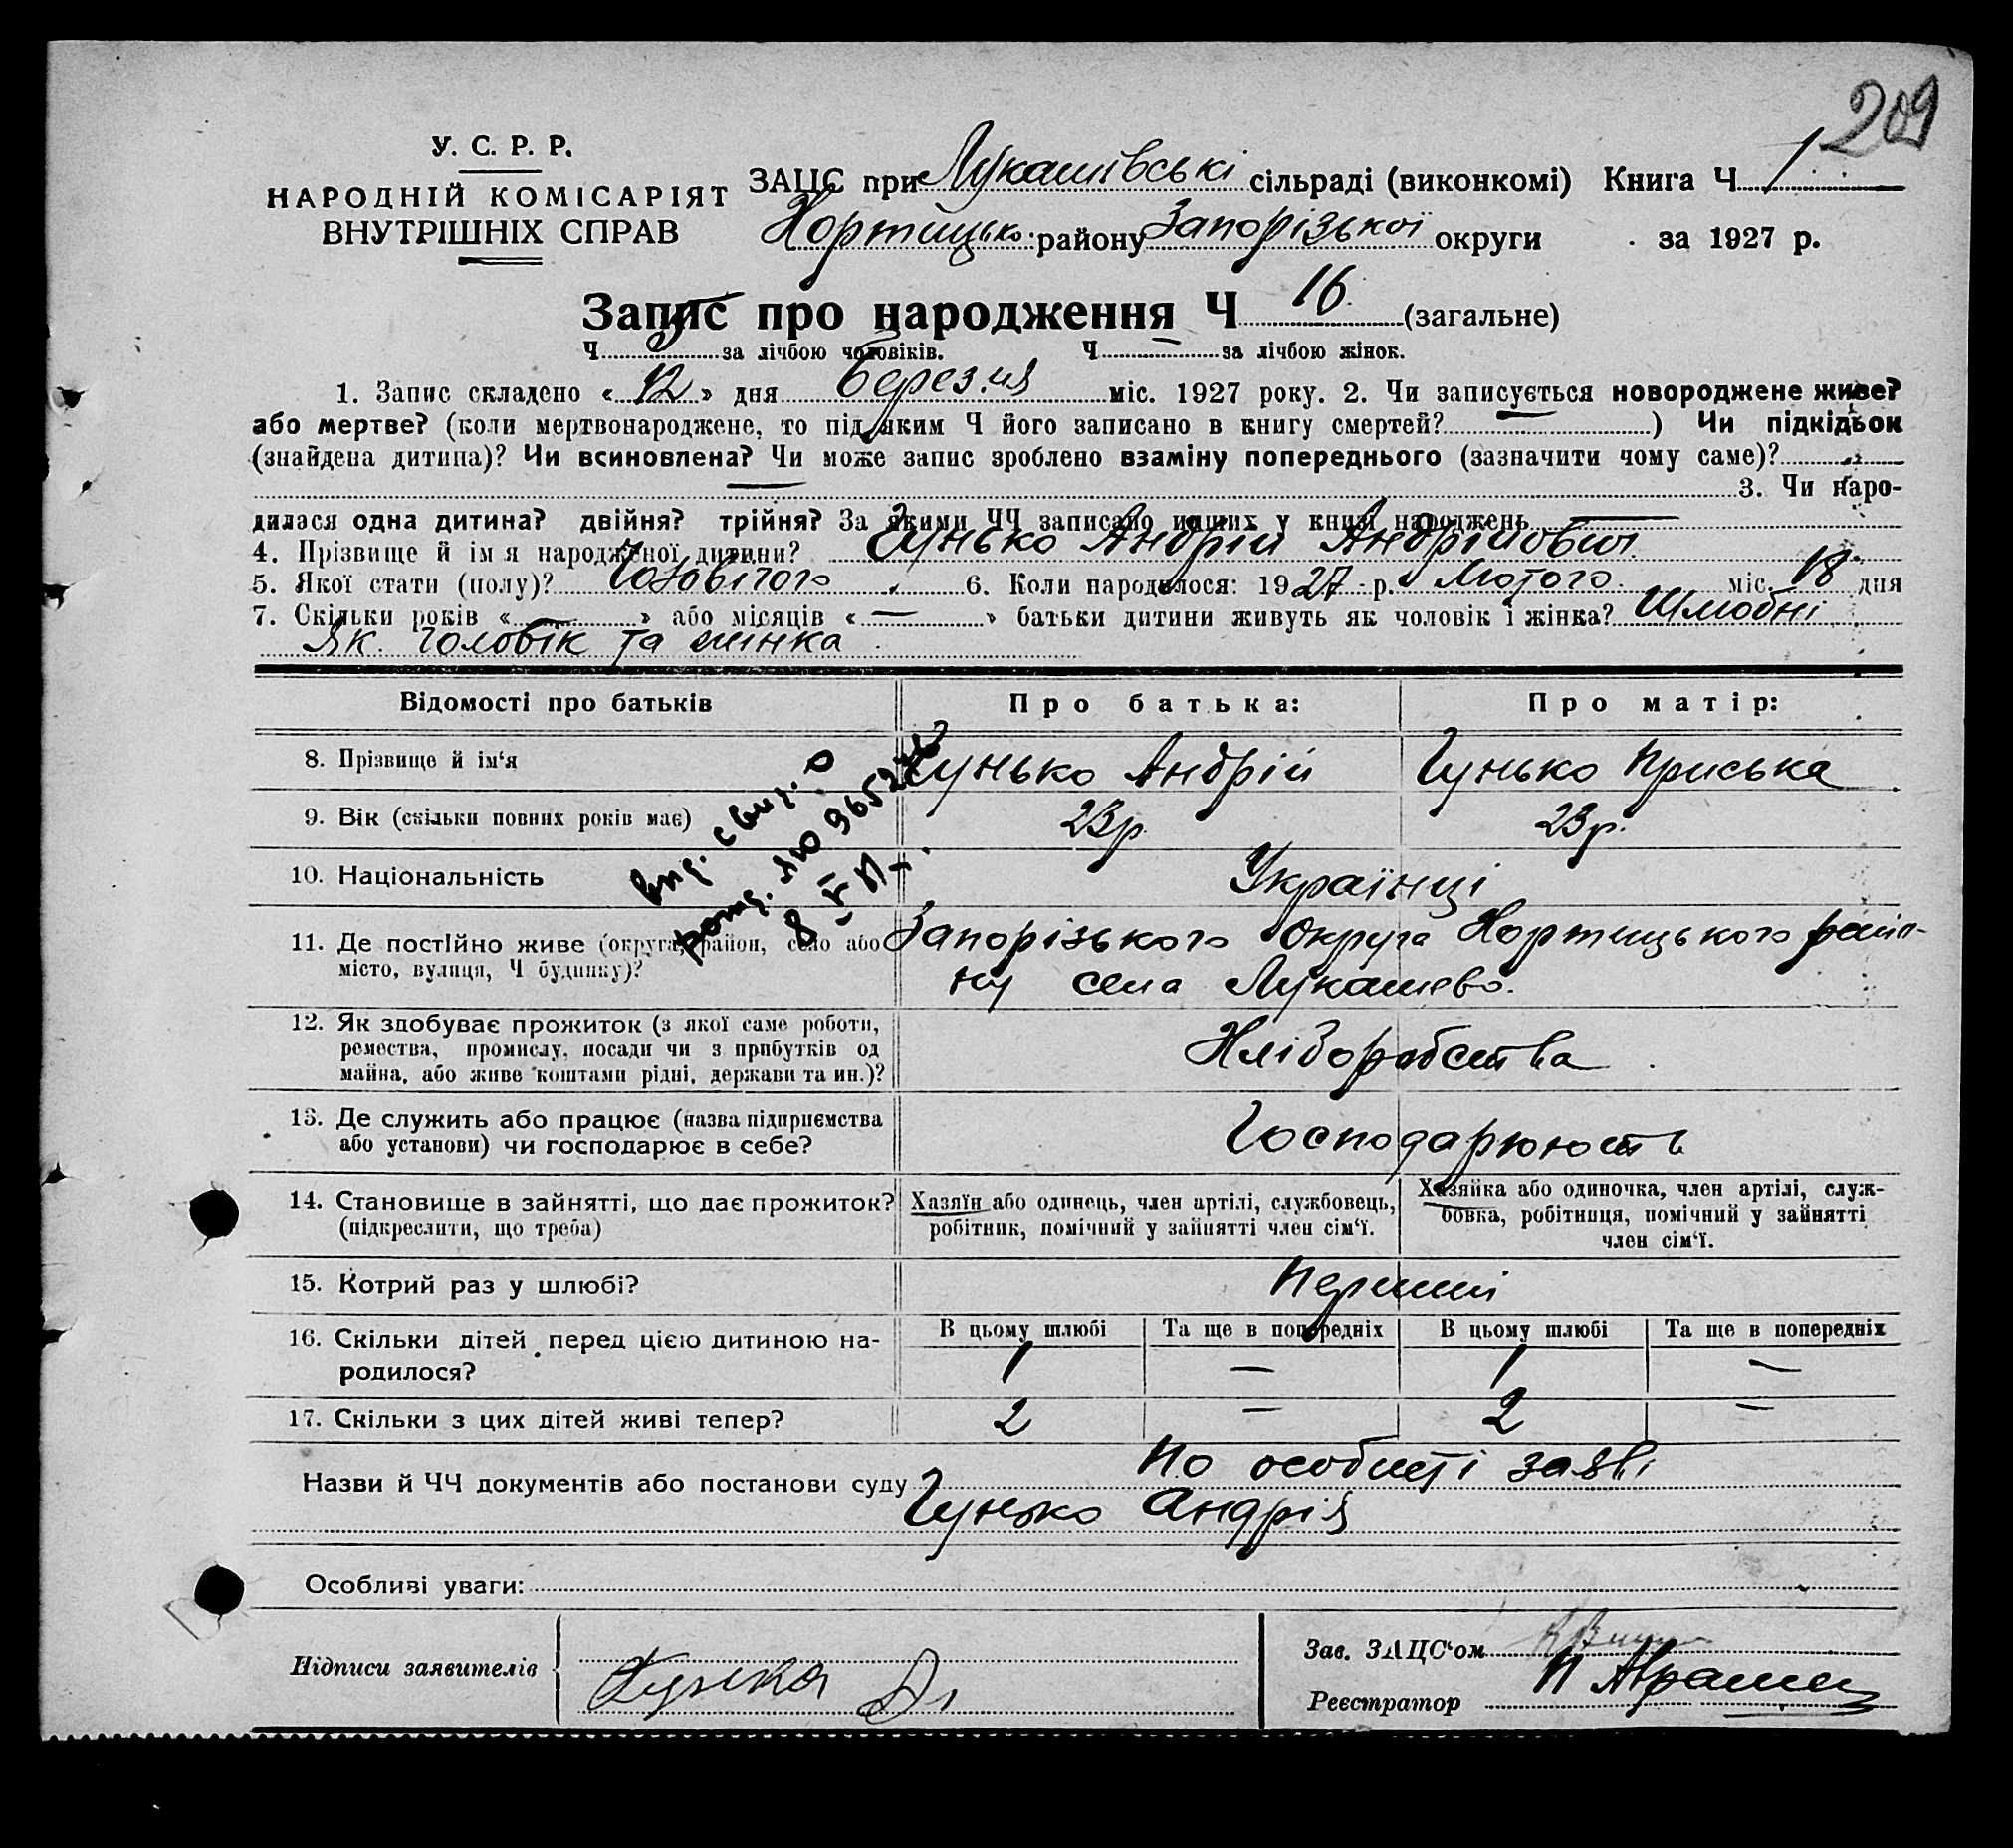 209
У. С. Р. Р.
НАРОДНІЙ КОМІСАРІЯТ
ВНУТРІШНІХ СПРАВ
ЗАЦС при Лукашівські сільраді (виконкомі) Книга Ч 1
Хортицько району Запорізької округи за 1927 р.
Запис про народження Ч 16 (загальне)
Ч. 9 за лічбою чоловіків. Ч. — за лічбою жінок.
1. Запис складено «12» дня березня міс. 1927 року. 2. Чи записується новороджене живе?
або мертве? (коли мертвонароджене, то під яким Ч його записано в книгу смертей? — ) Чи підкідьок
(знайдена дитина)? Чи всиновлена? Чи може запис зроблено взаміну попереднього (зазначити чому саме)?
— 3. Чи наро-
дилася одна дитина? двійня? трійня? За якими ЧЧ записано инших у книзі народжень —
4. Прізвище й імя народженої дитини? Гунько Андрій Андрійович
5. Якої стати (полу)? Чоловічого 6. Коли народилося: 1927 р. Лютого міс. 18 дня
7. Скільки років « — » або місяців « — » батьки дитини живуть як чоловік і жінка? Шлюбні
Як чоловік та жінка
Відомості про батьків Про батька: Про матір:
8. Прізвище й ім'я Гунько Андрій Гунько Приська
9. Вік (скільки повних років має) 23 р. 23 р.
10. Національність Українці
11. Де постійно живе (округа, район, село або Запорізького Округа Хортицького райо-
місто, вулиця, Ч будинку)? ну села Лукашево.
12. Як здобуває прожиток (з якої саме роботи,
ремества, промислу, посади чи з прибутків од Хліборобства
майна, або живе коштами рідні, держави та ин.)?
13. Де служить або працює (назва підприємства
або установи) чи господарює в себе? Господарюють
14. Становище в зайнятті, що дає прожиток? Хазяїн або одинець, член артілі, службовець, Хазяйка або одиночка, член артілі, служ-
(підкреслити, що треба) робітник, помічний у зайнятті член сім'ї. бовка, робітниця, помічний у зайнятті
член сім'ї.
15. Котрий раз у шлюбі? Перший
16. Скільки дітей перед цією дитиною на- В цьому шлюбі Та ще в попередніх В цьому шлюбі Та ще в попередніх
родилося? 1 — 1 —
17. Скільки з цих дітей живі тепер? 2 — 2 —
вид. свид. о
рожд.
Назви й ЧЧ документів або постанови суду По особисті заяві
Гунько Андрія
Особливі уваги:
Підписи заявителів
Зав. ЗАЦС'ом
Реєстратор